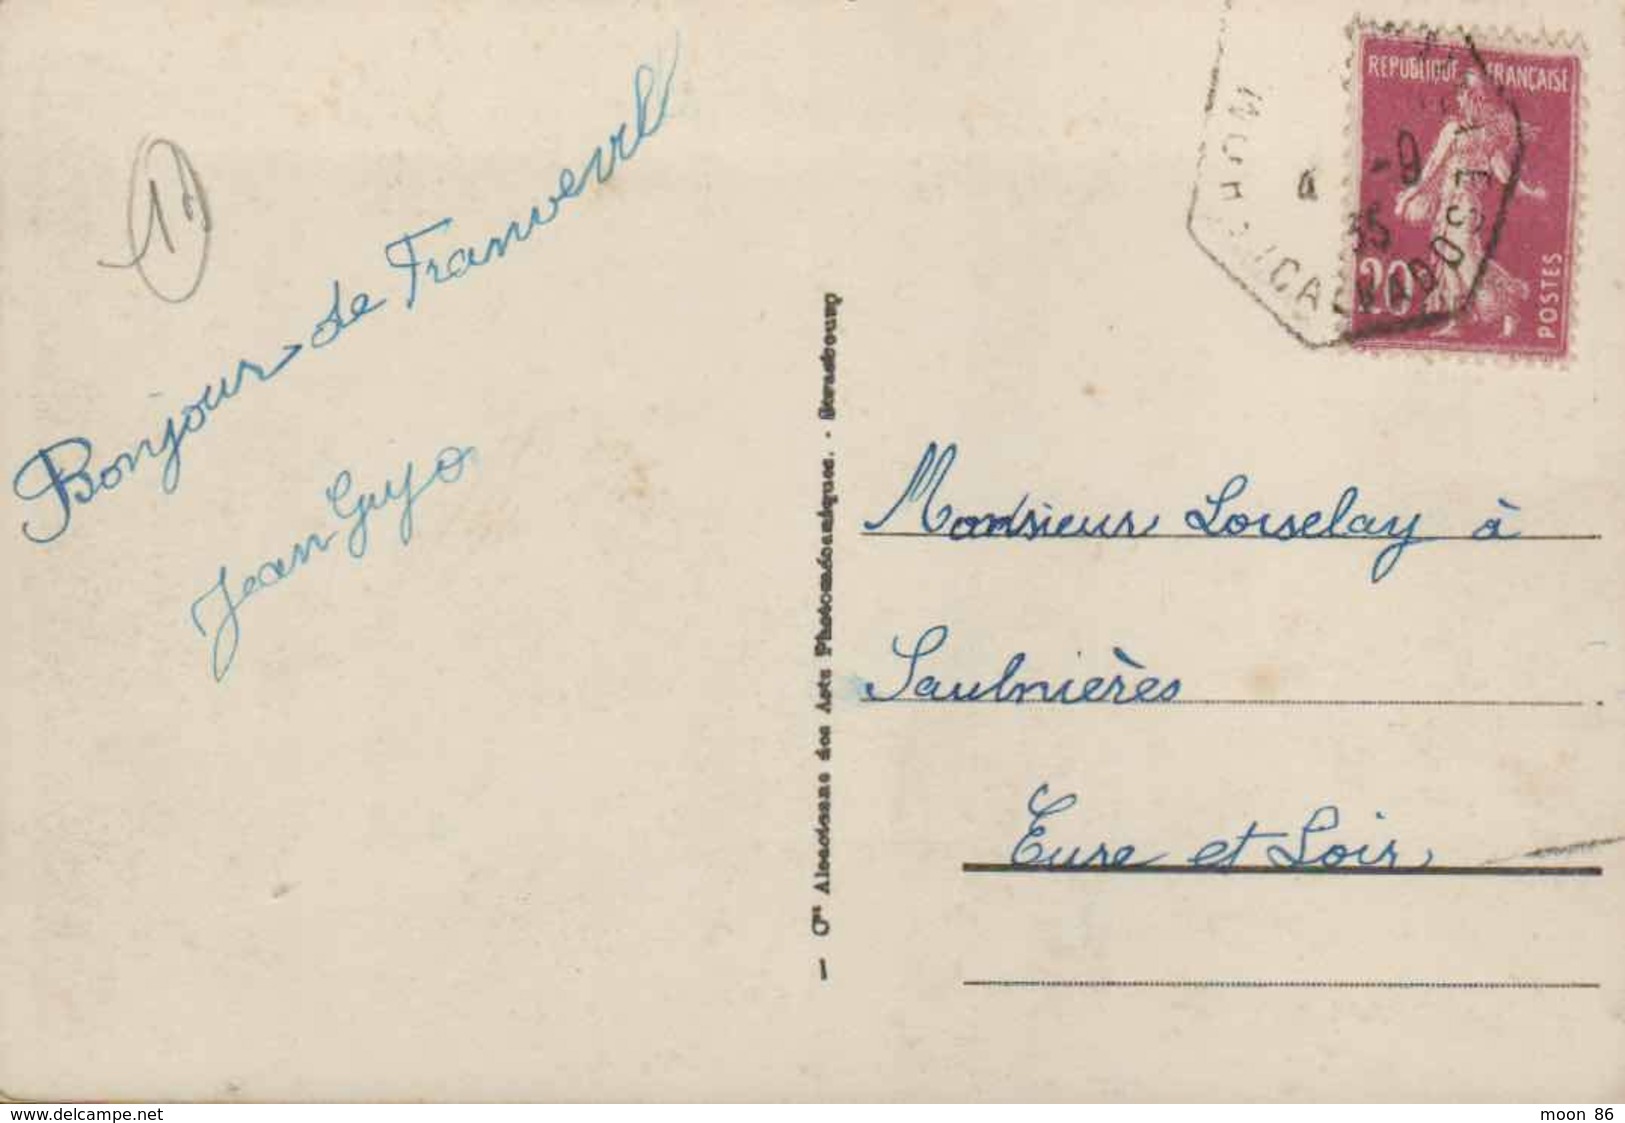 1
Bonjour de Franceville
Jean Guyo
— Cie Alsacienne des Arts Photomécaniques. - Strasbourg
REPUBLIQUE FRANÇAISE
20
POSTES
4 -9
35
CALVADOS
Monsieur Loiselay à
Saulnières
Eure et Loir
www.delcampe.net
moon 86